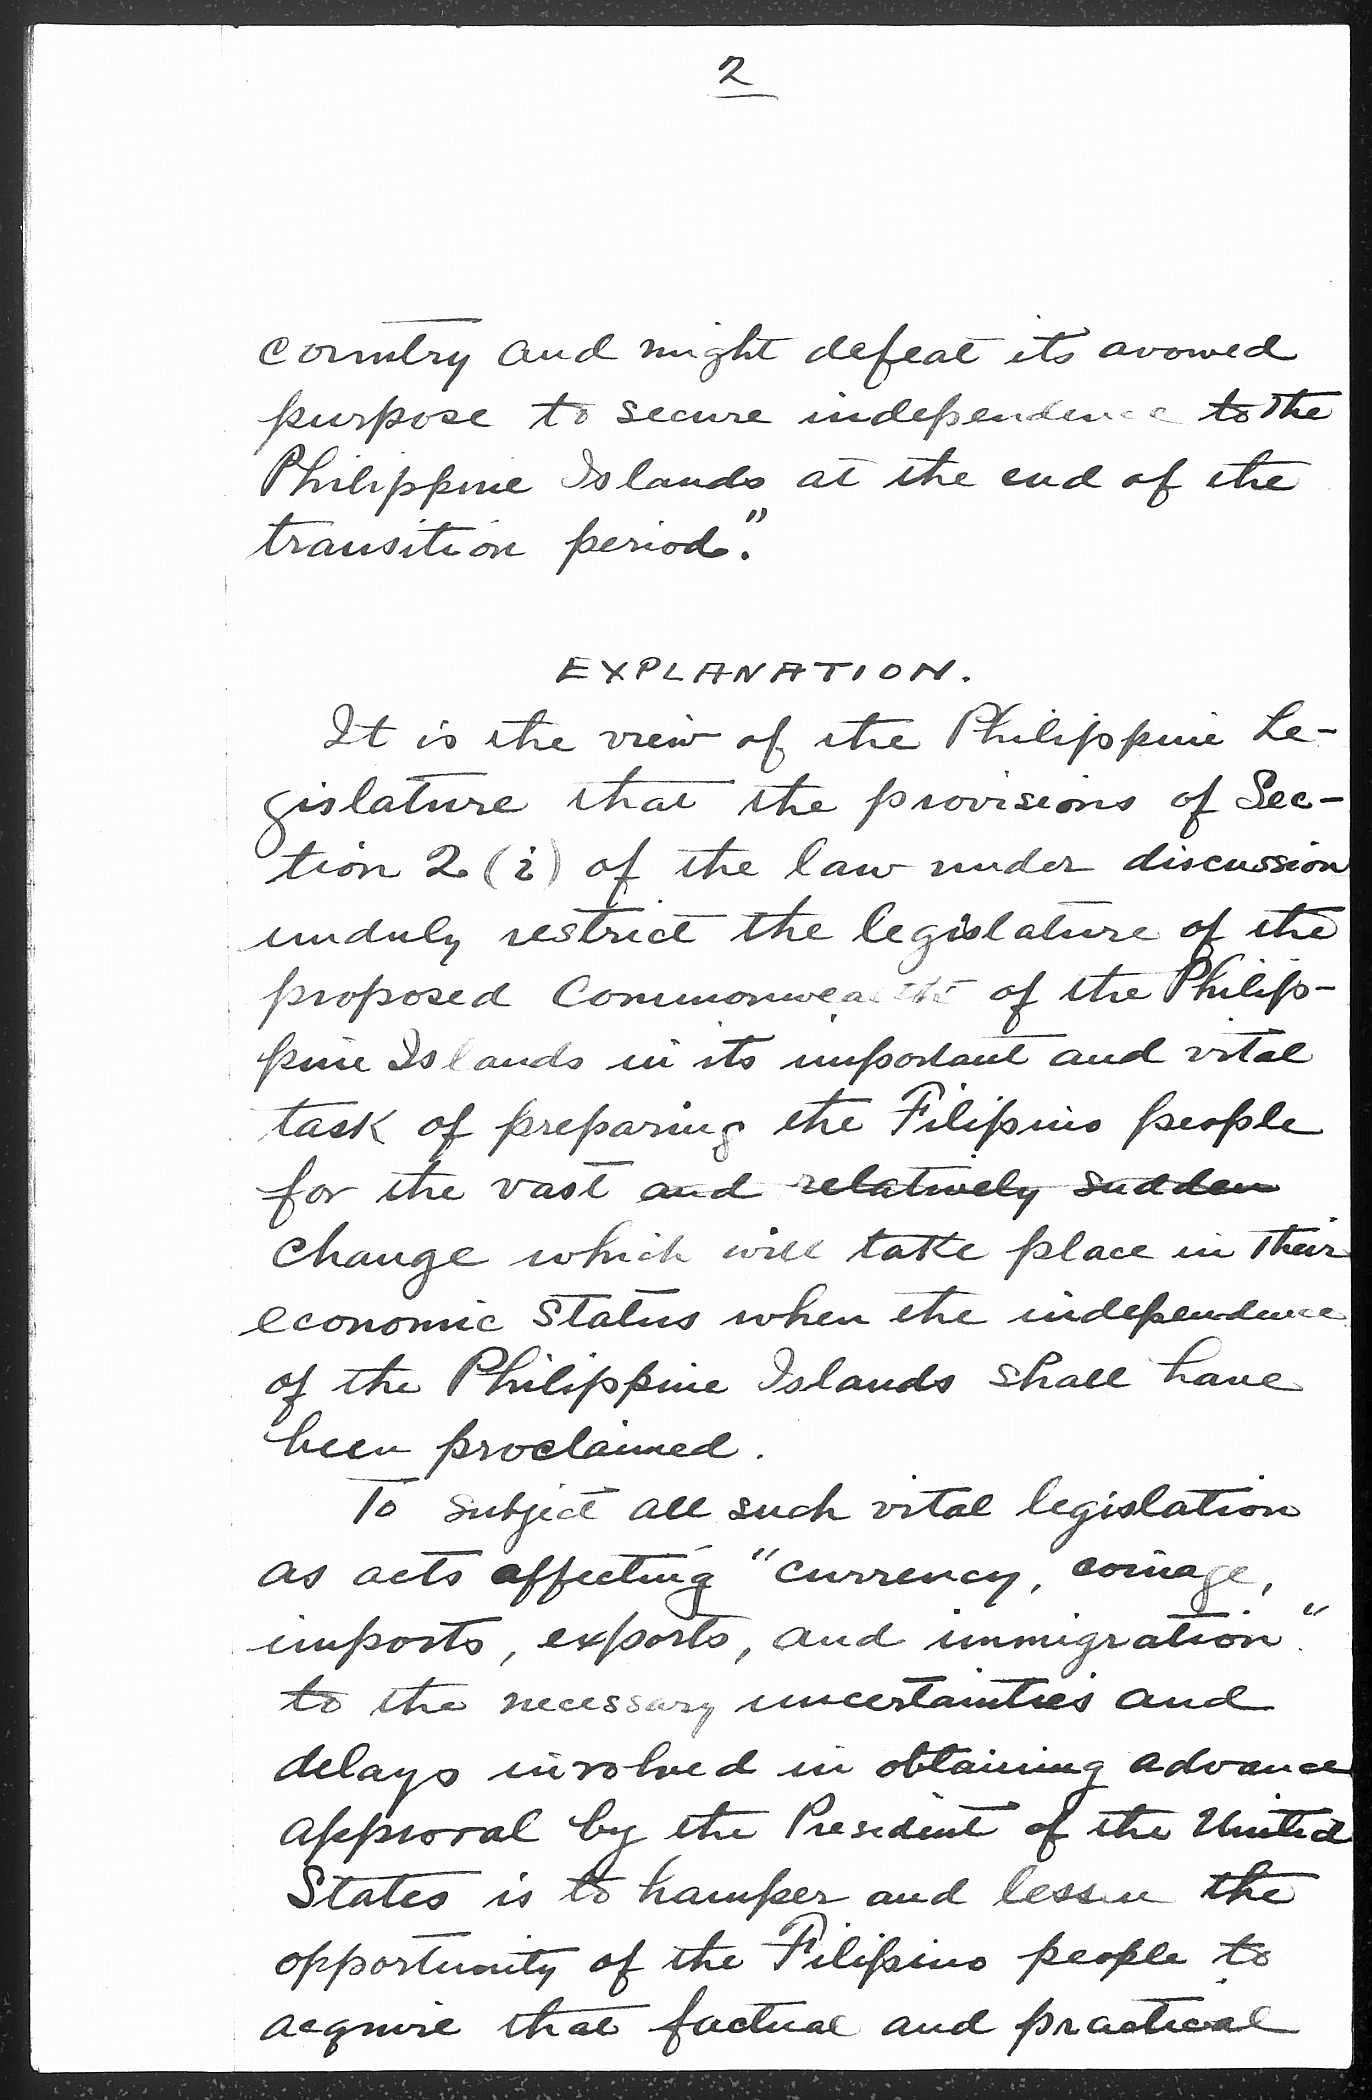 2
country and might defeat its avowed
purpose to secure independence to the
Philippine Islands at the end of the
transition period."
EXPLANATION.
It is the view of the Philippine Le-
gislature that the provisions of Sec-
tion 2 (i) of the law under discussion
unduly restrict the legislature of the
proposed Commonwealth of the Philip-
pine Islands in its important and vital
task of preparing the Filipino people
for the vast and relatively sudden
change which will take place in their
economic status when the independence
of the Philippine Islands shall have
been proclaimed.
To subject all such vital legislation
as acts affecting "currency, coinage,
imports, exports, and immigration"
to the necessary uncertainties and
delays involved in obtaining advance
approval by the President of the United
States is to hamper and lessen the
opportunity of the Filipino people to
acquire that factual and practical